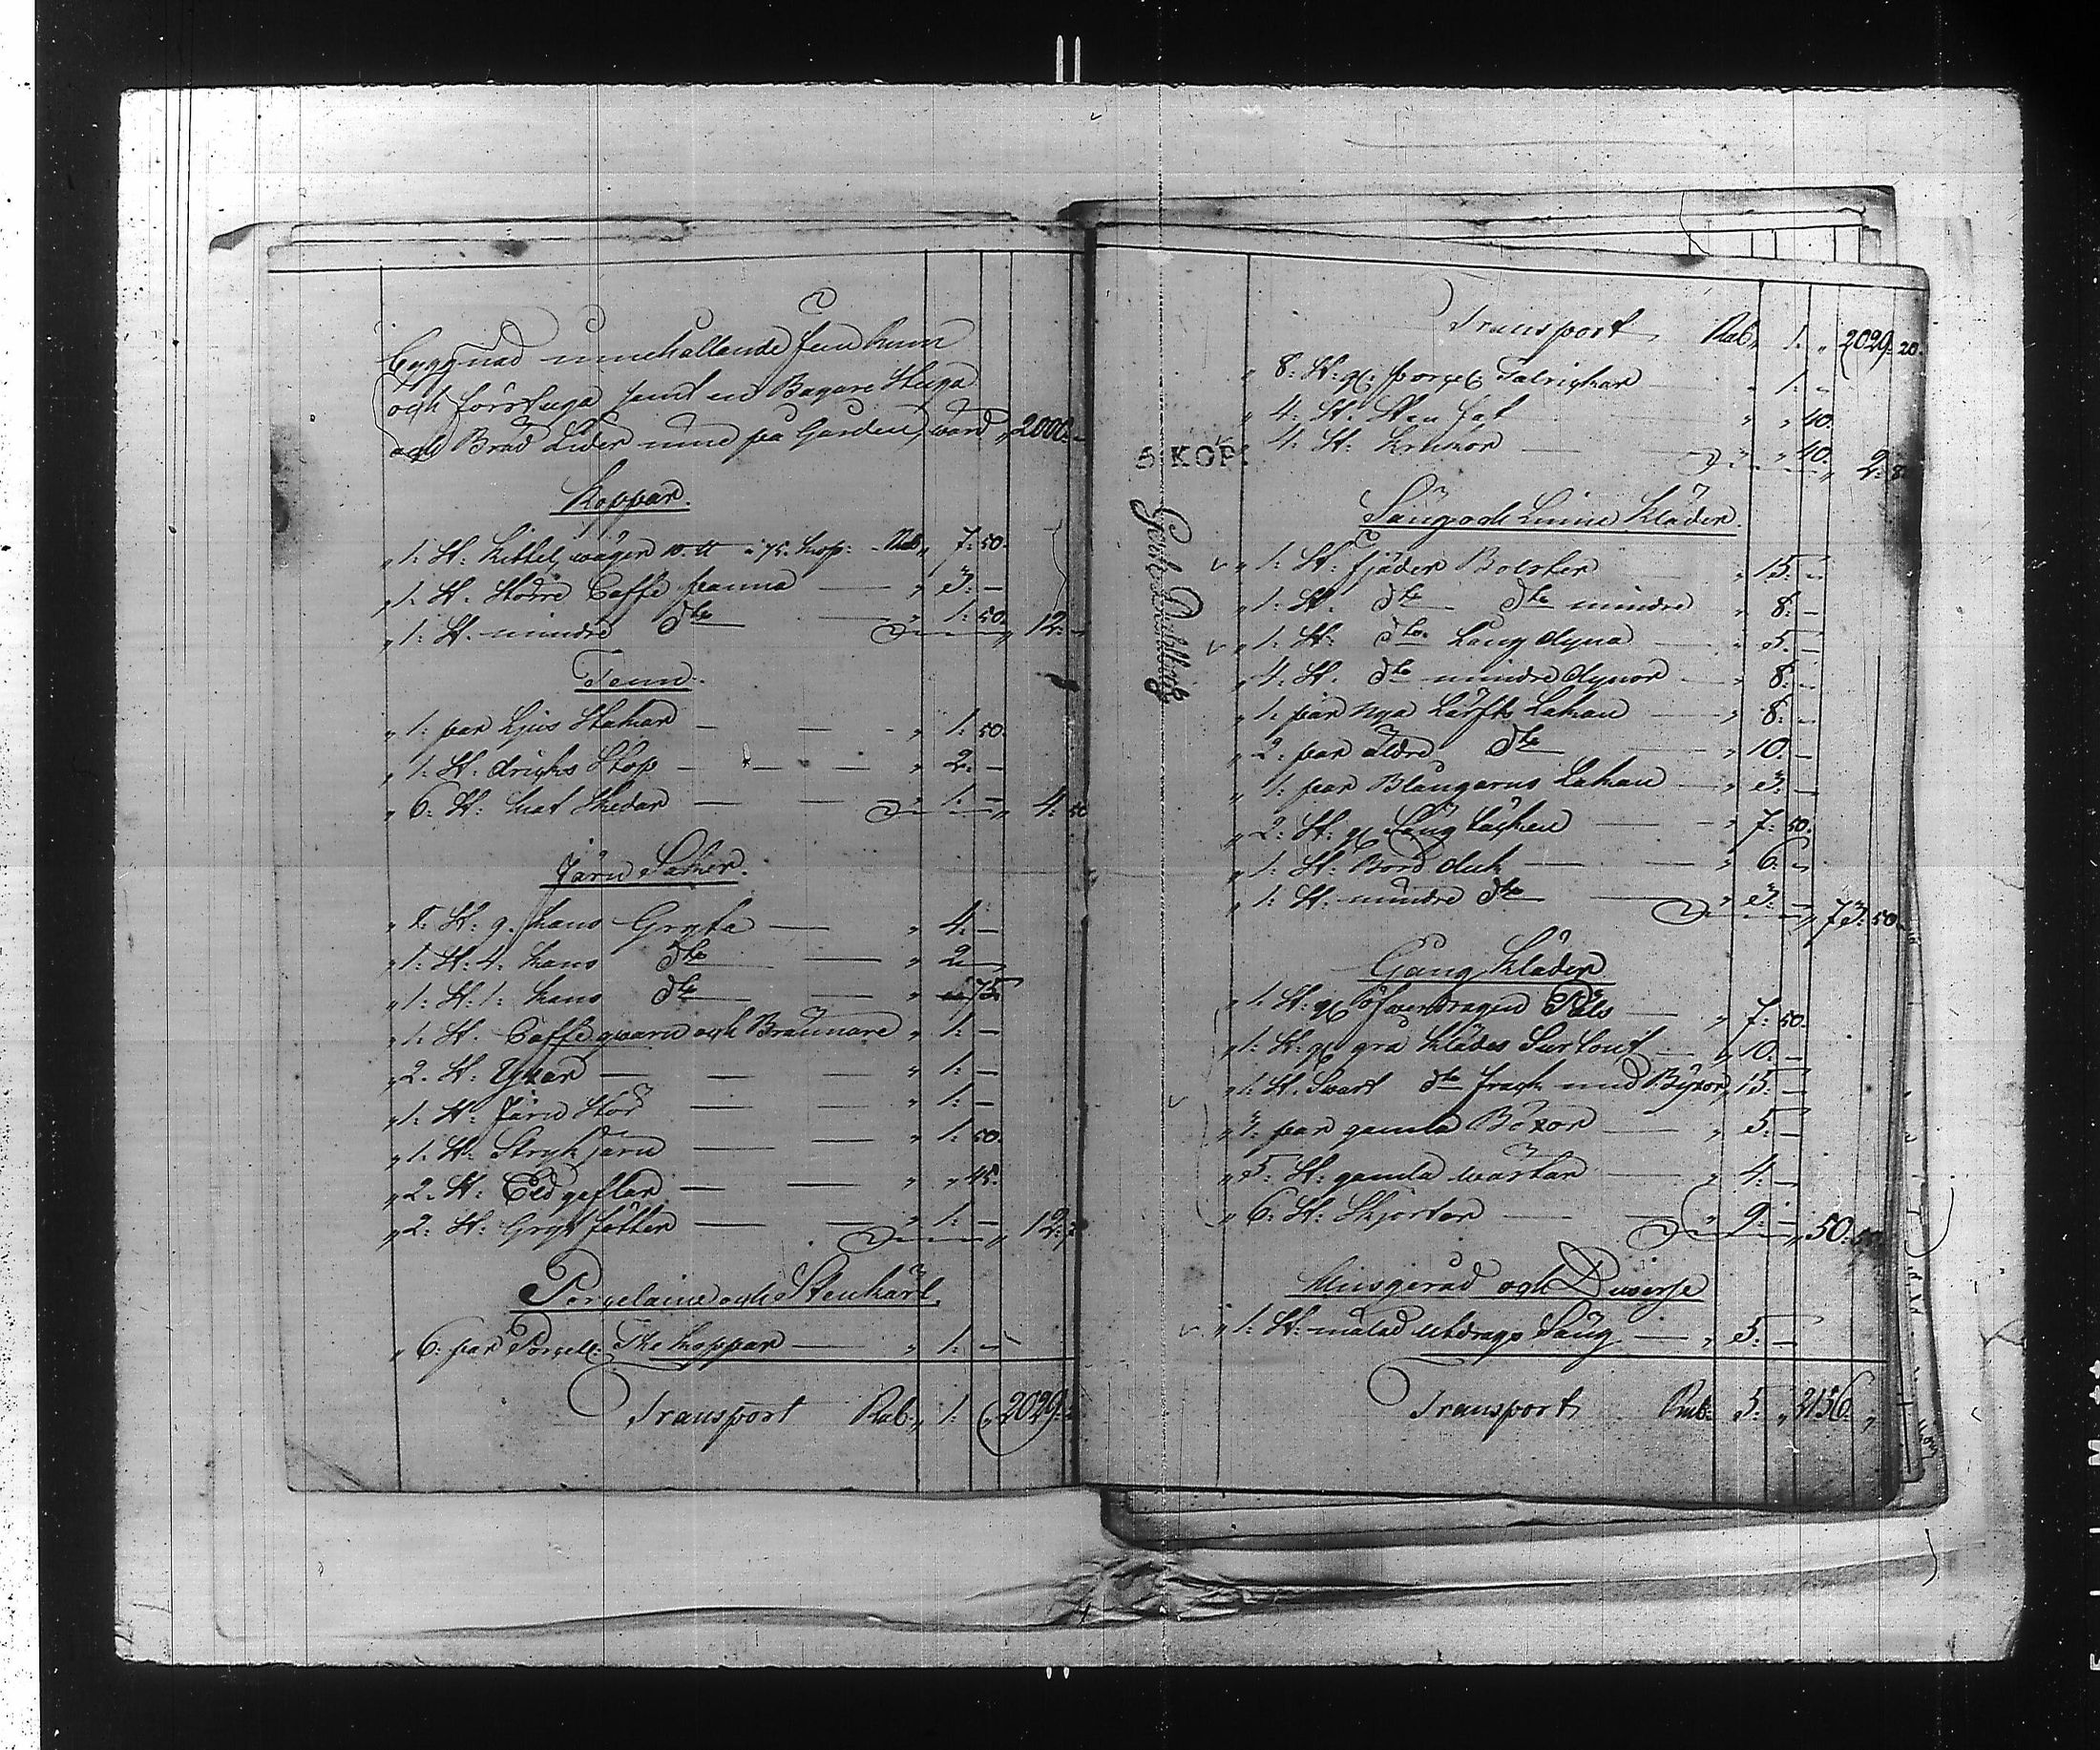 byggnad innehållande fem Rum
och förstuga samt en Bagare Stuga
och Bräd Lider inne på Gården, värd „ 2000:-
Koppar.
„ 1: St: Kittel, wäger 10. ℔ à 75. kop: - Rub „ 7: 50.
„ 1. St. Större Caffe panna — „ 3: —
„ 1: St. mindre dto — „ 1: 50. „ 12: —
Tenn.
„ 1: par Ljus Stakar — „ 1: 50.
„ 1: St. dricks Stop — „ 2: —
„ 6: St: Mat Skedar — „ 1: — „ 4: 50
Järn Saker.
„ 1: St. 9. kans Gryta — „ 4: —
„ 1: St: 4. kans dto — „ 2: —
„ 1: St: 1: kans dto — „ 75
„ 1: St. Caffe qwarn och Brännare „ 1: —
„ 2. St: Yxar — „ 1: —
„ 1: St: Järn Stör — „ 1: —
„ 1: St: Strykjärn — „ 1: 50.
„ 2. St: Eld gafflar — „ „ 45.
„ 2. St: Gryt fötter — „ 1: — „ 12:
Porcelaine och Stenkärl.
„ 6: par Porcell: The koppar — „ 1: —
Transport Rub: „ 1: „ 2029:
Transport Rub „ 1: „ 2029: 20.
„ 8: St: gl: porcel: Talrickar „ 1: „
„ 4: St. Sten fat „ „ 40.
„ 4: St: Krukor — „ „ 40. „ 2: 8
5 KOP.
Säng och Linne Kläder.
„ 1: St: fjäder Bolster „ 15: —
„ 1: St. dto dto mindre „ 8: —
„ 1: St: dto Lång dyna „ 5: —
„ 4: St. dto mindre dynor — „ 8: —
„ 1: par nya Lärfts Lakan — „ 8: —
„ 2: par äldre dto „ 10: —
„ 1: par Blångarns Lakan — „ 3: —
„ 2: St: gl Säng täcken — „ 7: 50.
„ 1: St: Bord duk — „ 6: „
„ 1: St: mindre dto — „ 3: — „ 73: 50
Gång Kläder
„ 1: St: gl öfverdragen Päls — „ 7: 50.
„ 1: St: gl grå Klädes Surtout — „ 10: —
„ 1: St. Svart dto frack med Byxor „ 15: —
par gamla Böxor — „ 5: —
„ 5: St: gamla wästar — „ 4: —
„ 6: St: Skjortor — „ 9: — „ 50: 50
Husgeråd och Diverse
„ 1: St: målad utdrags Säng — „ 5: —
Transport Rub: 5: „ 2156: „